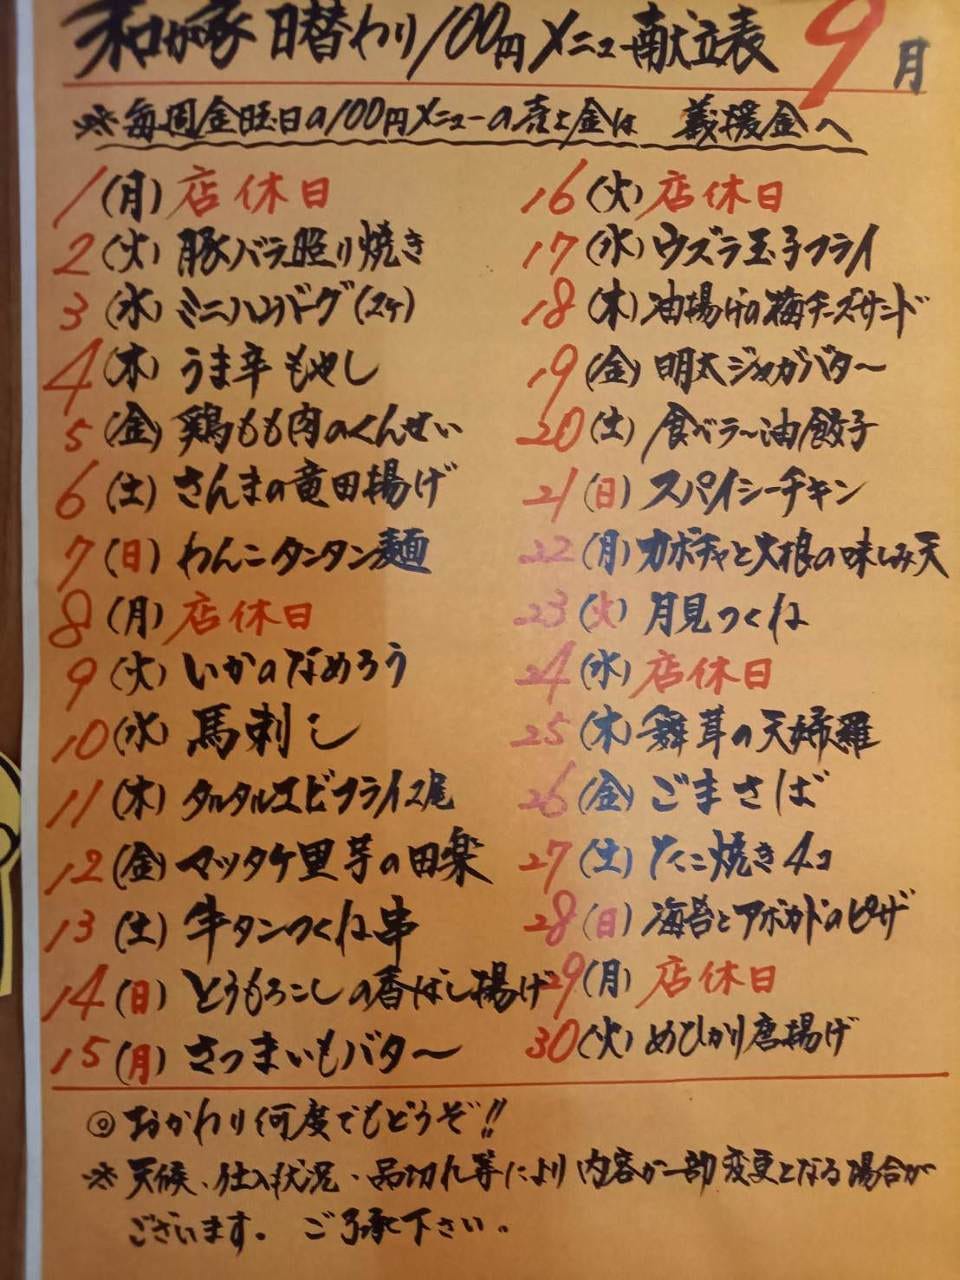 和が家 日替わり100円メニュー献立表 9月
※毎週金曜日の100円メニューの売上金は 義援金へ
1(月)店休日
2(火)豚バラ照り焼き
3(水)ミニハンバーグ(2ヶ)
4(木)うま辛もやし
5(金)鶏もも肉のくんせい
6(土)さんまの竜田揚げ
7(日)わんこタンタン麺
8(月)店休日
9(火)いかのなめろう
10(水)馬刺し
11(木)タルタルエビフライ2尾
12(金)マッタケ里芋の田楽
13(土)牛タンつくね串
14(日)とうもろこしの香ばし揚げ
15(月)さつまいもバター
16(火)店休日
17(水)ウズラ玉子フライ
18(木)油揚げの梅チーズサンド
19(金)明太ジャガバター
20(土)食べラー油餃子
21(日)スパイシーチキン
22(月)カボチャと大根の味しみ天
23(火)月見つくね
24(水)店休日
25(木)舞茸の天婦羅
26(金)ごまさば
27(土)たこ焼き4コ
28(日)海苔とアボカドのピザ
29(月)店休日
30(火)めひかり唐揚げ
◎おかわり何度でもどうぞ!!
※天候、仕入状況・品切れ等により内容が一部変更となる場合が
ございます。ご了承下さい。